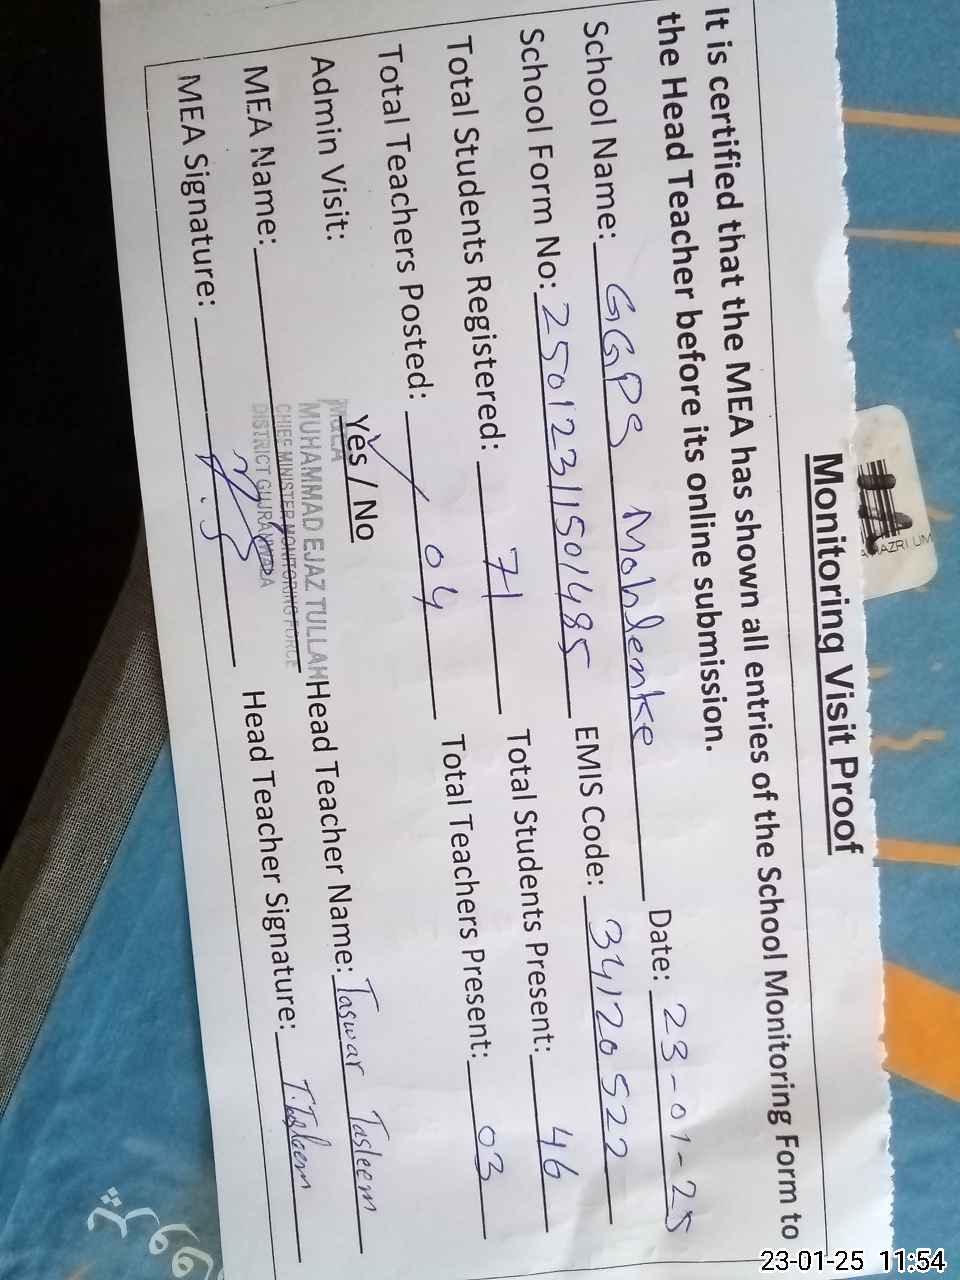 Monitoring Visit Proof
It is certified that the MEA has shown all entries of the School Monitoring Form to
the Head Teacher before its online submission.
School Name: GGPS Mohlenke Date: 23-01-25
School Form No: 25012311501485 EMIS Code: 34120522
Total Students Registered: 71 Total Students Present: 46
Total Teachers Posted: 04 Total Teachers Present: 03
Admin Visit: Yes / No
MEA Name: MUHAMMAD EJAZ TULLAH Head Teacher Name: Taswar Tasleem
CHIEF MINISTER MONITORING FORCE
DISTRICT GUJRANWALA
MEA Signature: Head Teacher Signature: T.Tasleem
23-01-25 11:54